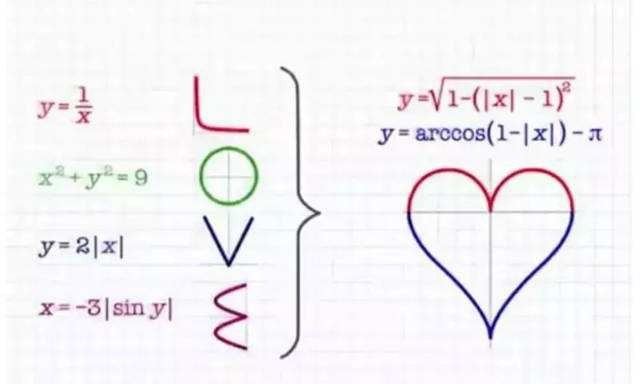 y = 1/x
x² + y² = 9
y = 2|x|
x = -3|sin y|
y = √1-(|x| - 1)²
y = arccos(1-|x|) - π